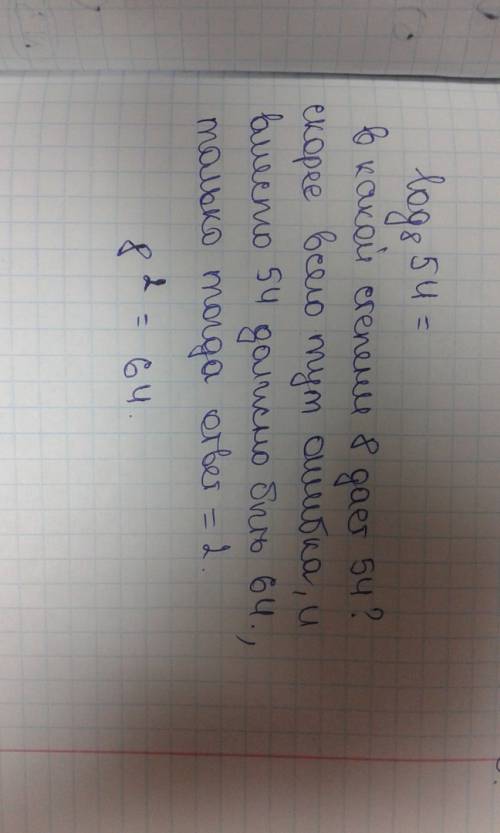 log₈ 54 =
в какой степени 8 дает 54?
скорее всего тут ошибка, и
вместо 54 должно быть 64.,
только тогда ответ = 2.
8² = 64.